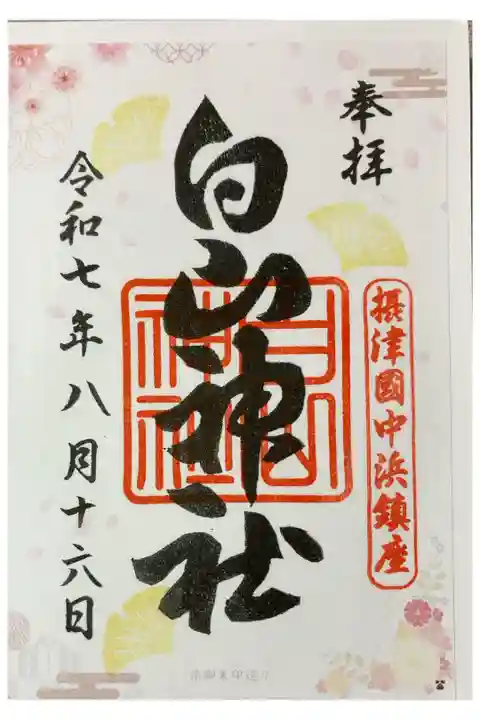 奉拝
摂津國中浜鎮座
白山神社
白山神社
令和七年八月十六日